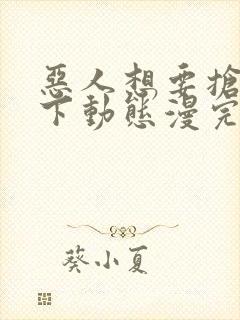 惡人想要搶
下動態漫完
葵小夏